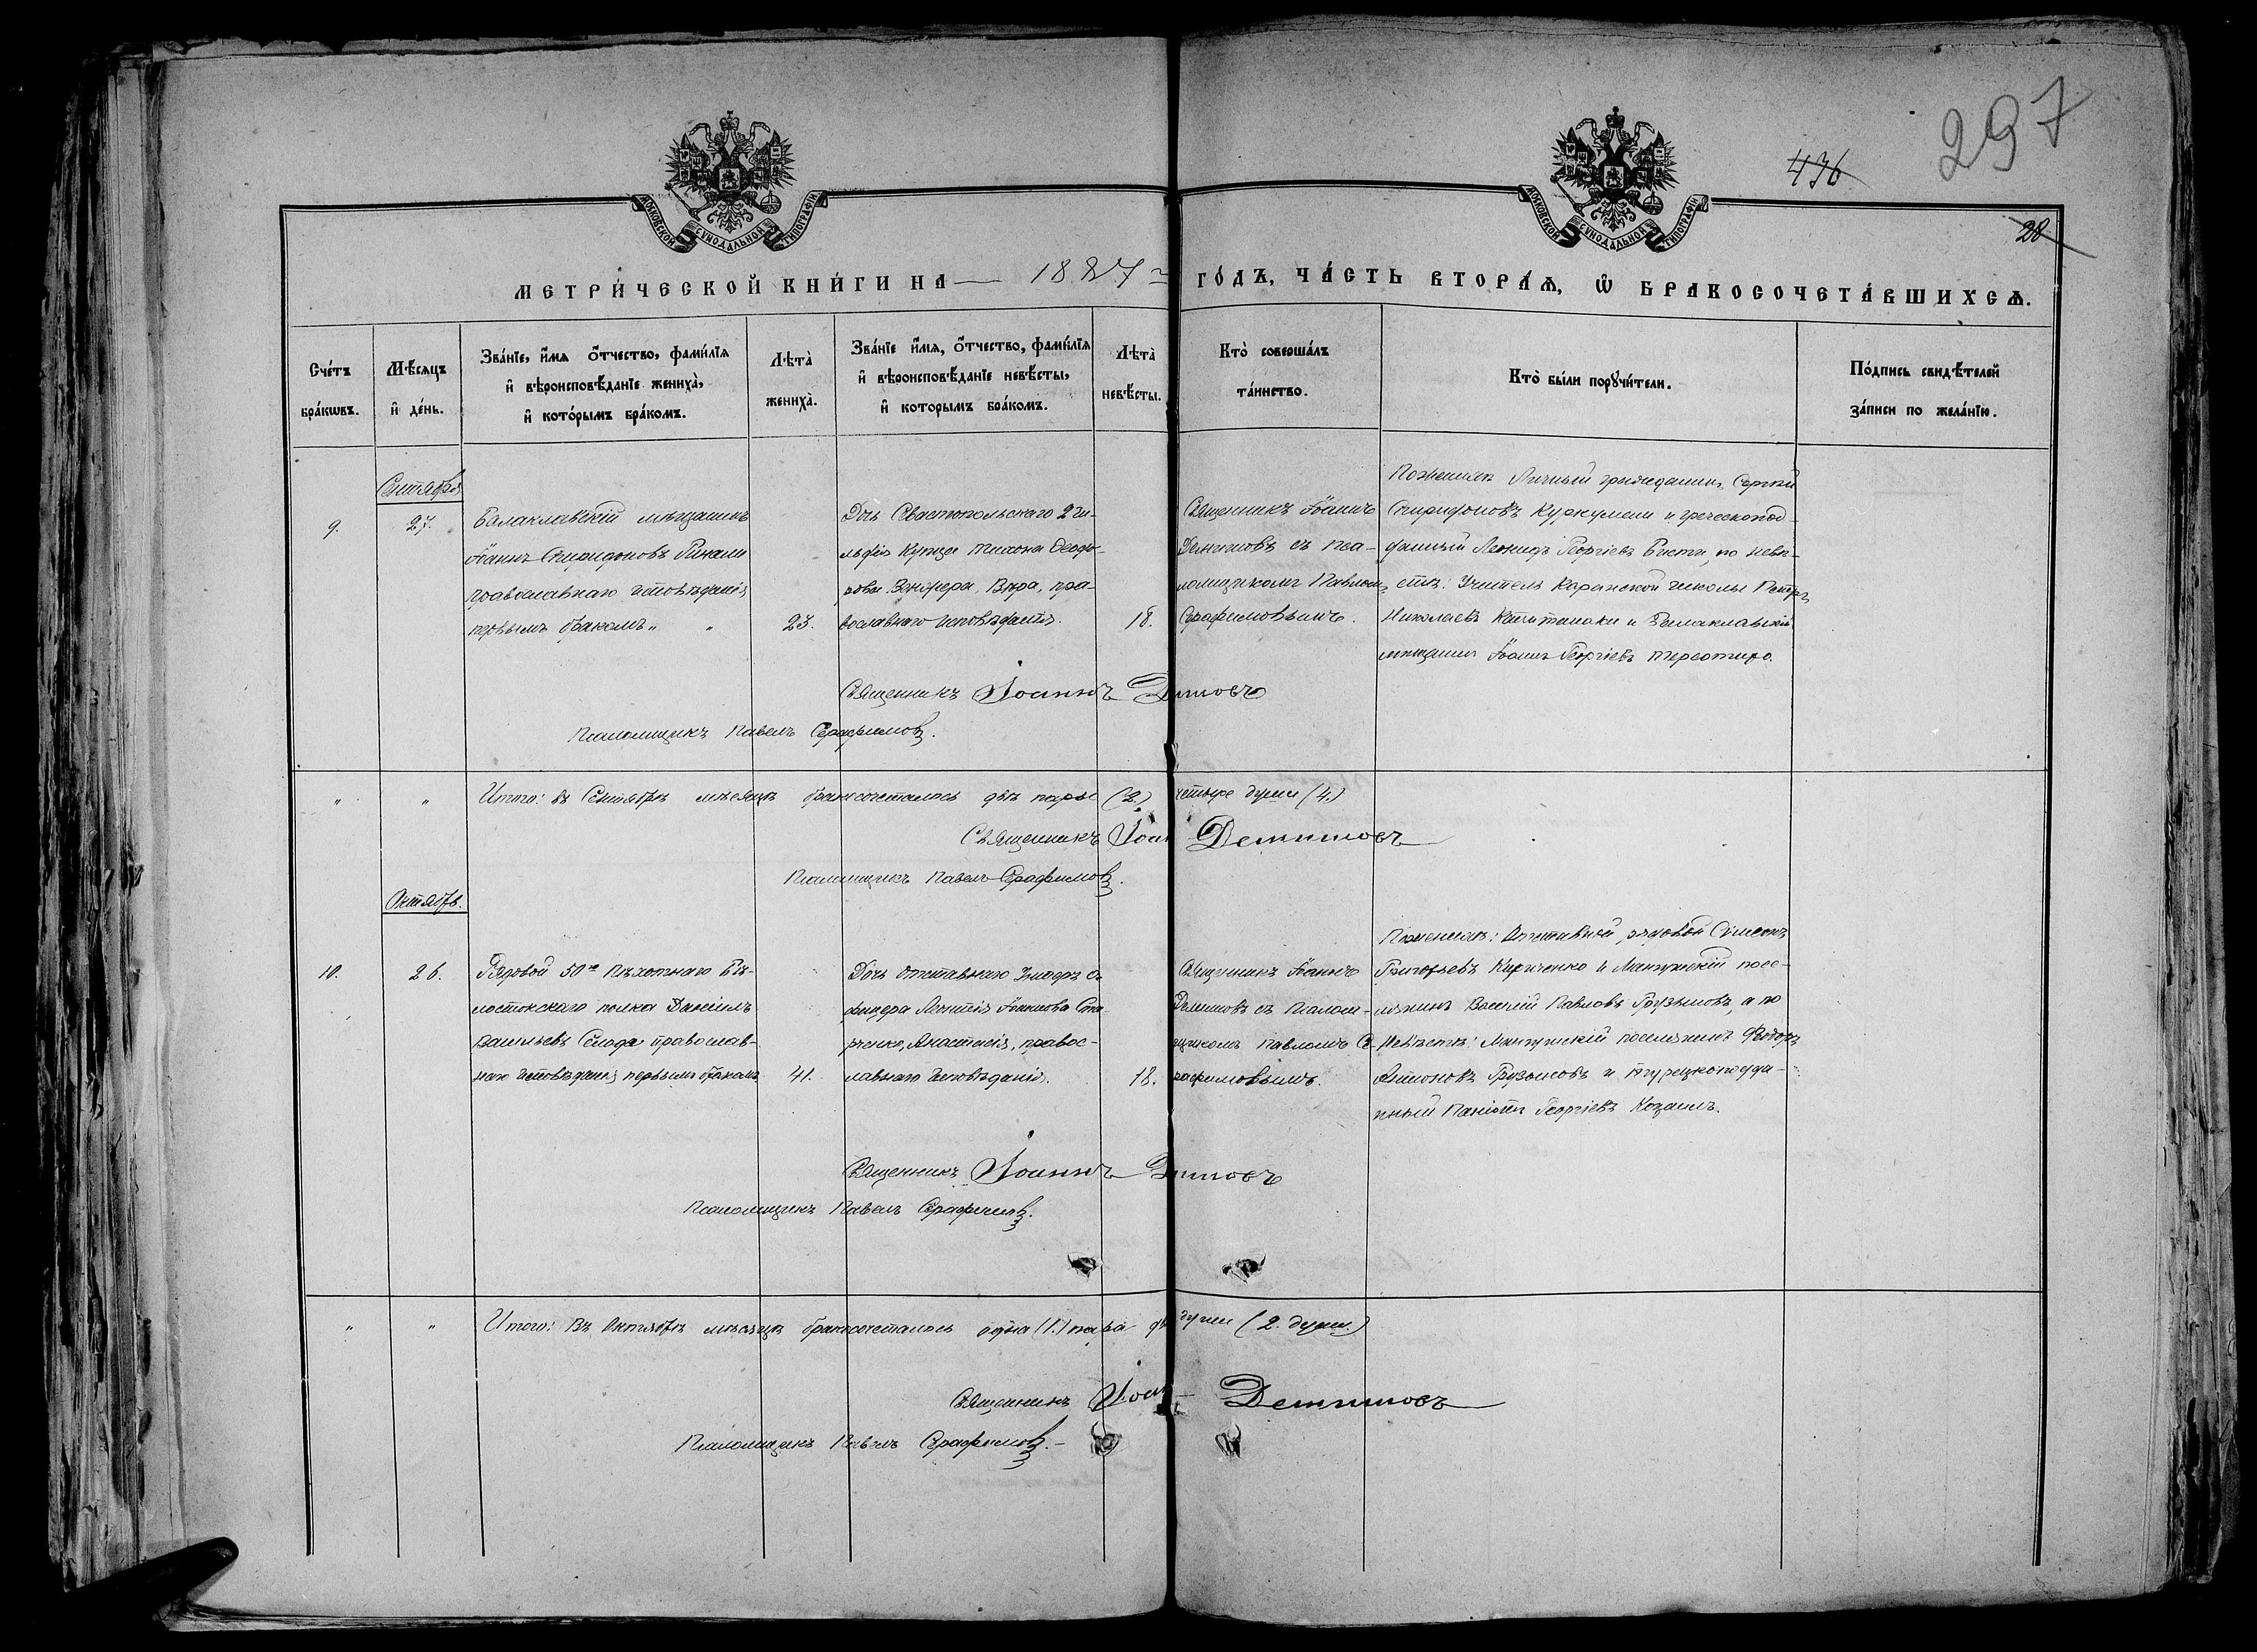 297
476
28
МОСКОВСКОЙ СѴНОДАЛЬНОЙ ТИПОГРАФІИ
МОСКОВСКОЙ СѴНОДАЛЬНОЙ ТИПОГРАФІИ
МЕТРИ́ЧЕСКОЙ КНИ́ГИ НА 1887 ГО́ДЪ, ЧА́СТЬ ВТОРА́Ѧ, Ѡ҆ БРАКОСОЧЕТА́ВШИХСѦ.
Сче́тъ бра́кѡвъ.
Мѣ́сяцъ и҆ де́нь.
Зва́нїе, и҆́мя о҆́тчество, фами́лїя
и҆ вѣроисповѣ́данїе жениха̀,
и҆ кото́рымъ бра́комъ.
Лѣта̀ жениха̀.
Зва́нїе и҆́мя, о҆́тчество, фами́лїя
и҆ вѣроисповѣ́данїе невѣ́сты,
и҆ которымъ бра́комъ.
Лѣта̀ невѣ́сты.
Кто̀ соверша́лъ та́инство.
Кто̀ бы́ли порꙋчи́тели.
По́дпись свидѣ́телей за́писи по жела́нїю.
Сентября
9.
27.
Балаклавскій мѣщанинъ
Іоаннъ Спиридоновъ
православнаго исповѣданія,
первымъ бракомъ „ „
23.
Дочь Севастопольскаго 2 ги-
льдіи купца Тихона Ѳеодо-
рова Вера, пра-
вославнаго исповѣданія.
18.
Священникъ Іоаннъ
Демишовъ съ Пса-
ломщикомъ Павломъ
Серафимовымъ.
По женихѣ Личный гражданинъ Сергѣй
Спиридоновъ Куркумели и греческопод-
данный Леонидъ Георгіевъ по невѣ-
стѣ: Учитель Каранской школы Петръ
Николаевъ и Балаклавскій
мѣщанинъ Іоаннъ Георгіевъ
Священникъ Іоаннъ Димовъ
Псаломщикъ Павелъ Серафимовъ.
„ „ Итого: въ Сентябрѣ мѣсяцѣ бракосочеталось двѣ пары (2.) четыре души (4.)
Священникъ Іоан Демишовъ
Псаломщикъ Павелъ Серафимовъ.
Октябрь.
10.
26.
Рядовой 50го Пѣхотнаго Бѣ-
лостокскаго полка Даніилъ
Васильевъ православ-
наго исповѣданія первымъ бракомъ
41.
Дочь отставнаго Унтеръ о-
фицера Леонтія Іоаннова
Анастасія, правос-
лавнаго исповѣданія.
18.
Священникъ Іоаннъ
Демишовъ съ Псалом-
щикомъ Павломъ Се-
рафимовымъ.
По женихѣ: Отставной рядовой Симеонъ
Григорьевъ Кириченко и Мангушскій посе-
лянинъ Василій Павловъ Грузиновъ, а по
Невѣстѣ: Мангушскій поселянинъ Ѳеодоръ
Антоновъ Грузиновъ и турецкоподда-
нный Георгіевъ
Священникъ Іоаннъ Димовъ
Псаломщикъ Павелъ Серафимовъ.
„ „ Итого: Въ Октябрѣ мѣсяцѣ бракосочеталось одна (1.) пара двѣ души (2. души.)
Священникъ Іоан Демишовъ
Псаломщикъ Павелъ Серафимовъ.